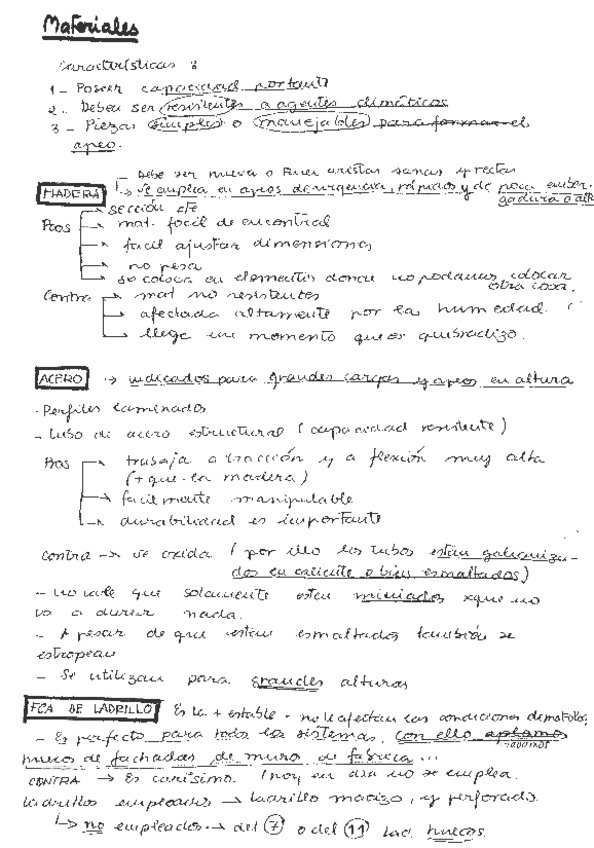 Materiales
Características:
1 - Poseer capacidad portante
2. Deben ser resistentes a agentes climáticos
3 - Piezas simples o manejables para formar el
apeo.
- Debe ser nueva o tener aristas sanas y rectas
MADERA ↳ Se emplea en apeos de urgencia, rápidos y de poca enver-
gadura o alt
Pros → sección cte
→ mat. facil de encontrar
→ facil ajustar dimensiones
→ no pesa
→ se coloca en elementos donde no podamos colocar
otra cosa.
Contra → mat no resistentes
→ afectada altamente por la humedad.
→ llega un momento que es quebradizo.
ACERO → indicados para grandes cargas y apeos en altura
· Perfiles laminados
- tubo de acero estructural (capacidad resistente)
Pros → trabaja a tracción y a flexión muy alta
(+ que la madera)
→ facilmente manipulable
→ durabilidad es importante
contra → se oxida (por ello los tubos están galvaniza-
dos en caliente o bien esmaltados)
- no vale que solamente esten miniados xque no
va a durar nada.
- A pesar de que esten esmaltados también se
estropean
- Se utilizan para grandes alturas
FCA DE LADRILLO Es la + estable - no le afectan las condiciones climatolog,
- Es perfecto para todos los sistemas. con ello
muros de fachadas de muro de fabrica...
CONTRA → Es carísimo. (hoy en dia no se emplea
ladrillos empleados → ladrillo macizo, y perforado.
↳ no empleados → del 7 o del 11 lad. huecos.